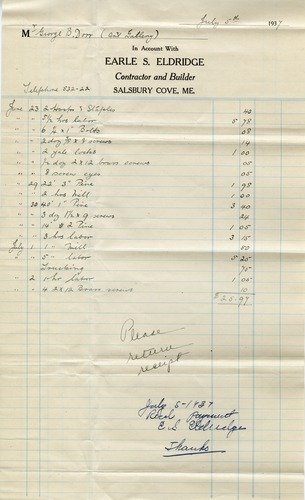 July 5th 1937
Mr George B. Dorr (Art Gallery)
In Account With
EARLE S. ELDRIDGE
Contractor and Builder
Telephone 522-22
SALSBURY COVE, ME.
June 23 2 Hasps & Staples 40
" " 5½ hrs labor 5 78
" " 6 ¼ x 1" Bolts 08
" " 2 doz screws 14
" " 2 yale locks 1 00
" " ½ doz 2 x 12 brass screws 05
" " 8 screw eyes 05
" 29 22' 3" Pine 1 98
" " 2 hrs mill 1 00
" 30 40' 1" Pine 3 40
" " 3 doz 1½ x 9 screws 24
" " 14' # 2 Pine 1 05
" " 3 hrs labor 3 15
July 1 1 " mill 50
" " 5 " labor 5 25
Trucking 75
" 2 1 hr labor 1 05
" " 4 2 x 12 Brass screws 10
$25.97
Please
return
receipt
July 5-1937
Recd Payment
E. S. Eldridge
Thanks